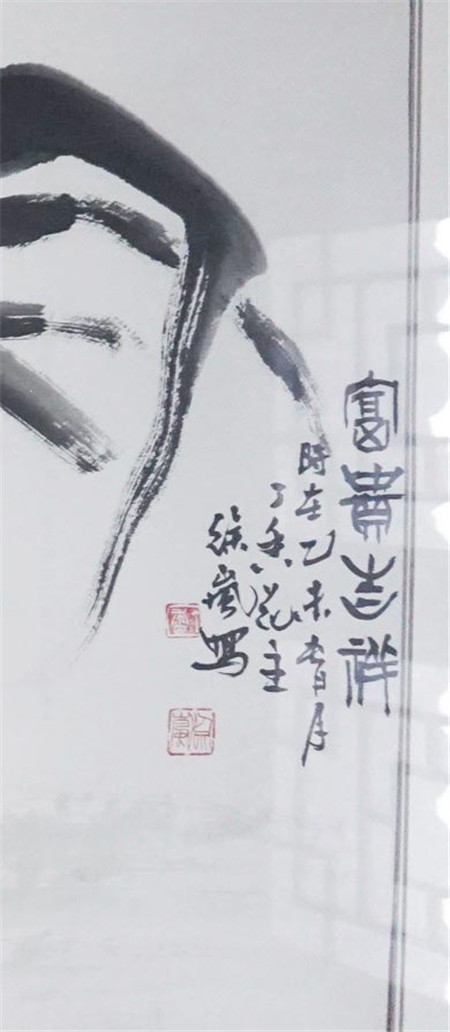 富貴吉祥
時在乙未春月
丁香花主
徐嵐寫